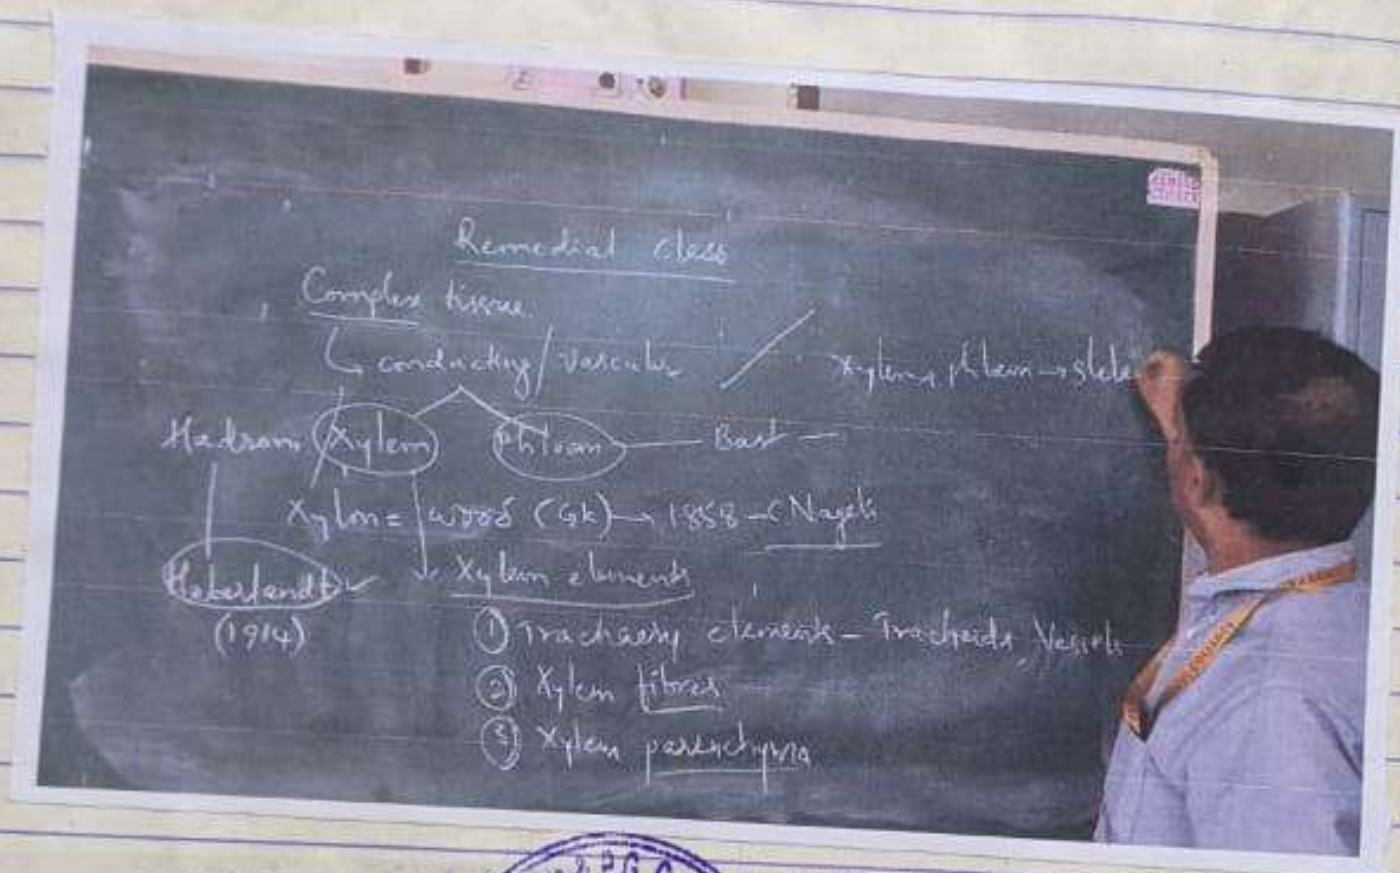 Remedial class
Complex tissue
conducting/vascular
Xylem, phloem → stele
Hadrom Xylem Phloem — Bast —
Xylon = wood (Gk) → 1858 — Nageli
Haberlandt
(1914)
Xylem elements
① Trachaery elements - Tracheids, Vessels
② Xylem fibres
③ Xylem parenchyma